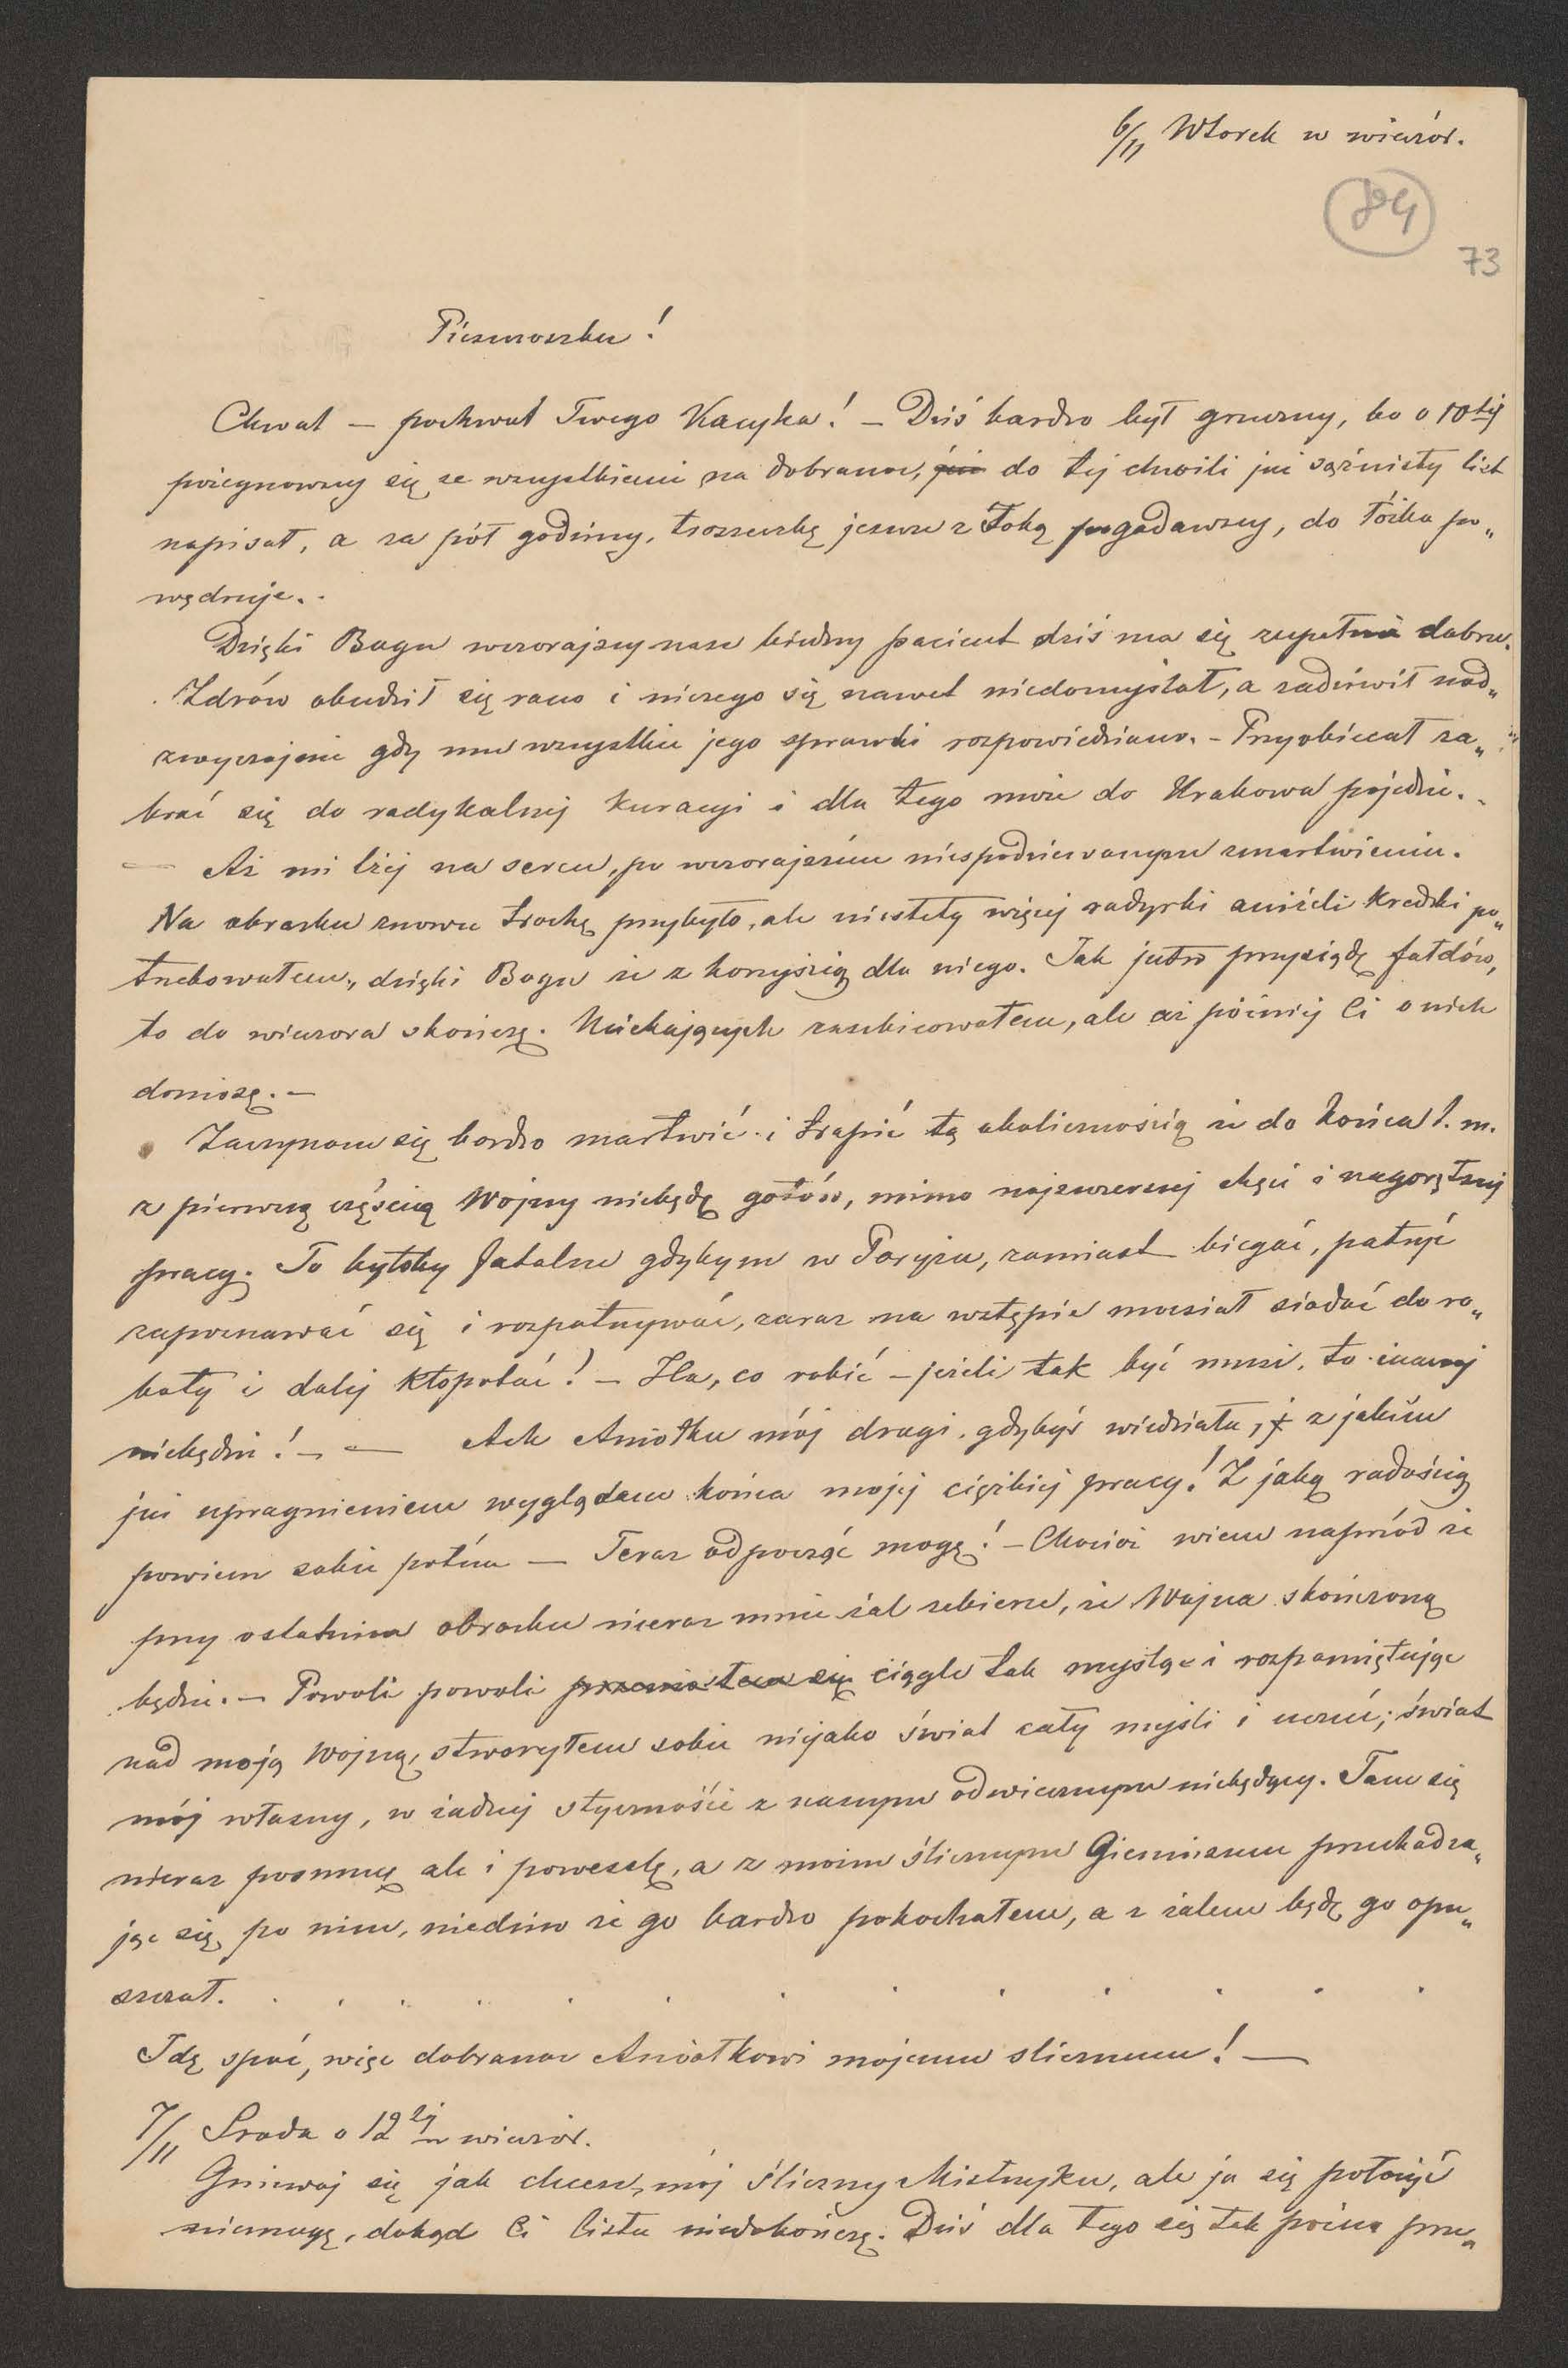 6/11 Wtorek w wieczór.
84
73
Pieszczoszku!
Chwat — pochwal Twego Kacyka! — Dziś bardzo był grzeczny, bo o 10tej
pożegnawszy się ze wszystkiemi na dobranoc, już do tej chwili już sążnisty list
napisał, a za pół godziny, troszeczkę jeszcze z Tobą pogadawszy, do łóżka po„
wędruje. -
Dzięki Bogu wczorajszy nasz biedny pacient dziś ma się zupełnie dobrze.
Zdrów obudził się rano i niczego się nawet niedomyślał, a zadziwił nad„
zwyczajnie gdy mu wszystkie jego sprawki rozpowiedziano. – Przyobiecał za„
brać się do radykalnej kuracyi i dla tego może do Krakowa pojedzie. -
— Aż mi lżej na sercu, po wczorajszém niespodziewanym zmartwieniu.
Na obrazku znowu trochę przybyło, ale niestety więcej radyrki aniżeli kredki po„
trzebowałem, dzięki Bogu że z korzyścią dla niego. Jak jutro przysiądę fałdów,
to do wieczora skończę. Uciekających zaszkicowałem, ale aż później Ci o nich
doniosę. —
Zaczynam się bardzo martwić i trapić tą okolicznością że do końca t. m.
z pierwszą częścią Wojny niebędę gotów, mimo najszczerszej chęci i nagorętszej
pracy. To byłoby fatalne gdybym w Paryżu, zamiast biegać, patrzyć
zapoznawać się i rozpatrywać, zaraz na wstępie musiał siadać do ro„
boty i dalej kłopotać! — Ha, co robić — jeżeli tak być musi, to inaczej
niebędzie! — — Ach Aniołku mój drogi, gdybyś wiedziała, j z jakiém
już upragnieniem wyglądam końca mojej ciężkiej pracy! Z jaką radością
powiem sobie potém — Teraz odpocząć mogę! — Chociaż wiem naprzód że
przy ostatnim obrazku nieraz mnie żal zebierze, że Wojna skończoną
będzie. — Powoli powoli się ciągle tak myśląc i rozpamiętując
nad moją Wojną, stworzyłem sobie niejako świat cały myśli i uczuć; świat
mój własny, w żadnej styczności z naszym odwiecznym niebędący. Tam się
nieraz posmucę ale i poweselę, a z moim ślicznym Gieniuszem przechadza„
jąc się po nim, niedziw że go bardzo pokochałem, a z żalem będę go opu„
szczał. . . . . . . . . . . . .
Idę spać, więc dobranoc Aniołkowi mojemu slicznemu! —
7/11 Sroda o 12tej w wieczór.
Gniewaj się jak chcesz, mój śliczny Mistrzyku, ale ja się położyć
niemogę, dokąd Ci listu niedokończę. Dziś dla tego się tak późno prze„